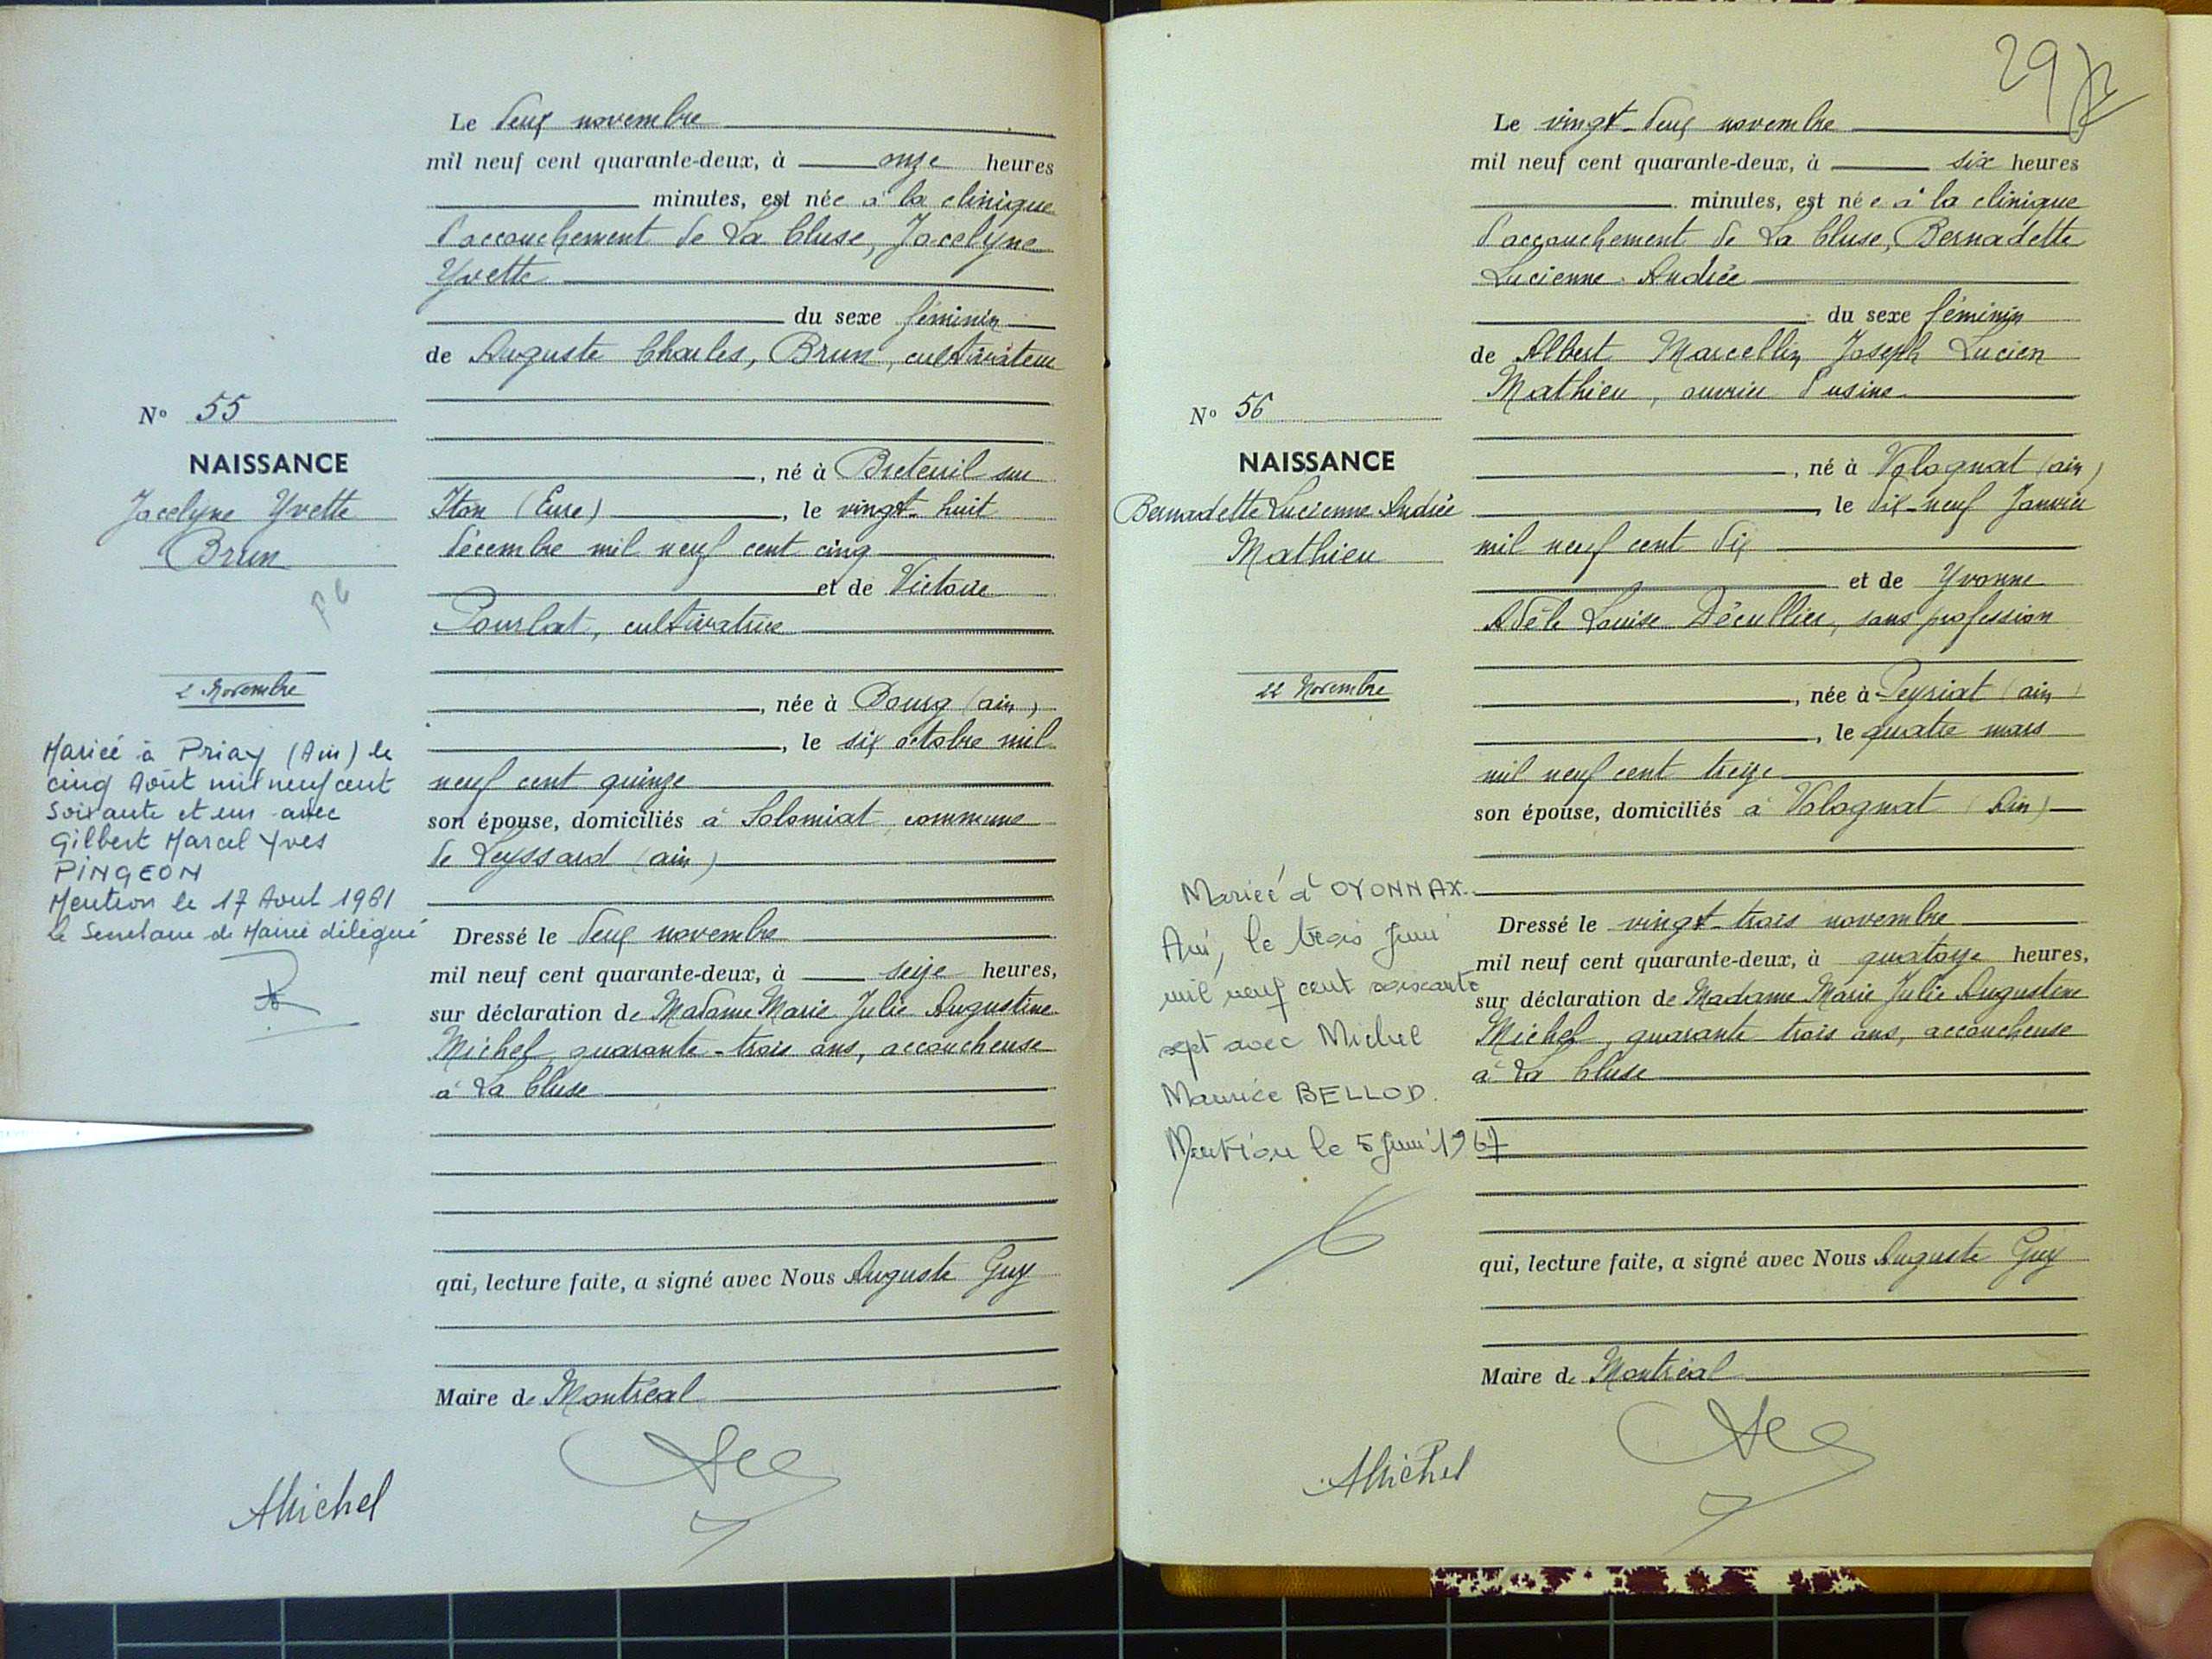 Le deux novembre
mil neuf cent quarante-deux, à onze heures
minutes, est née à la clinique
d'accouchement de La Cluse, Jacelyne
Yvette
du sexe féminin
de Auguste Charles, Brun, cultivateur
N° 55
NAISSANCE
Jacelyne Yvette
Brun
, né à Breteuil sur
Iton (Eure), le vingt-huit
décembre mil neuf cent cinq
et de Victoire
Pourlat, cultivatrice
2 Novembre
, née à Bourg (ain)
, le six octobre mil
neuf cent quinze
son épouse, domiciliés à Solomiat commune
de Leyssard (ain)
Mariée à Priay (Ain) le
cinq Août mil neuf cent
soixante et un avec
Gilbert Marcel Yves
PINGEON
Mention le 17 Aout 1961
le Secretaire de Mairie délégué
Dressé le deux novembre
mil neuf cent quarante-deux, à seize heures,
sur déclaration de Madame Marie Julie Augustine
Michel, quarante-trois ans, accoucheuse
à La Cluse
qui, lecture faite, a signé avec Nous Auguste Guy
Maire de Montréal
AMichel
29
Le vingt-deux novembre
mil neuf cent quarante-deux, à six heures
minutes, est née à la clinique
d'accouchement de La Cluse, Bernadette
Lucienne Andrée
du sexe féminin
de Albert Marcellin Joseph Lucien
Mathieu, ouvrier d'usine
N° 56
NAISSANCE
Bernadette Lucienne Andrée
Mathieu
, né à Volognat (ain)
, le dix-neuf Janvier
mil neuf cent dix
et de Yvonne
Adèle Louise Décullier, sans profession
22 Novembre
, née à Peyriat (ain)
, le quatre mars
mil neuf cent treize
son épouse, domiciliés à Volognat (Ain)
Mariée à OYONNAX
Ain, le trois Juin
mil neuf cent soixante
sept avec Michel
Maurice BELLOD.
Mention le 5 Juin 1967
Dressé le vingt-trois novembre
mil neuf cent quarante-deux, à quatorze heures,
sur déclaration de Madame Marie Julie Augustine
Michel, quarante trois ans, accoucheuse
à La Cluse
qui, lecture faite, a signé avec Nous Auguste Guy
Maire de Montréal
AMichel